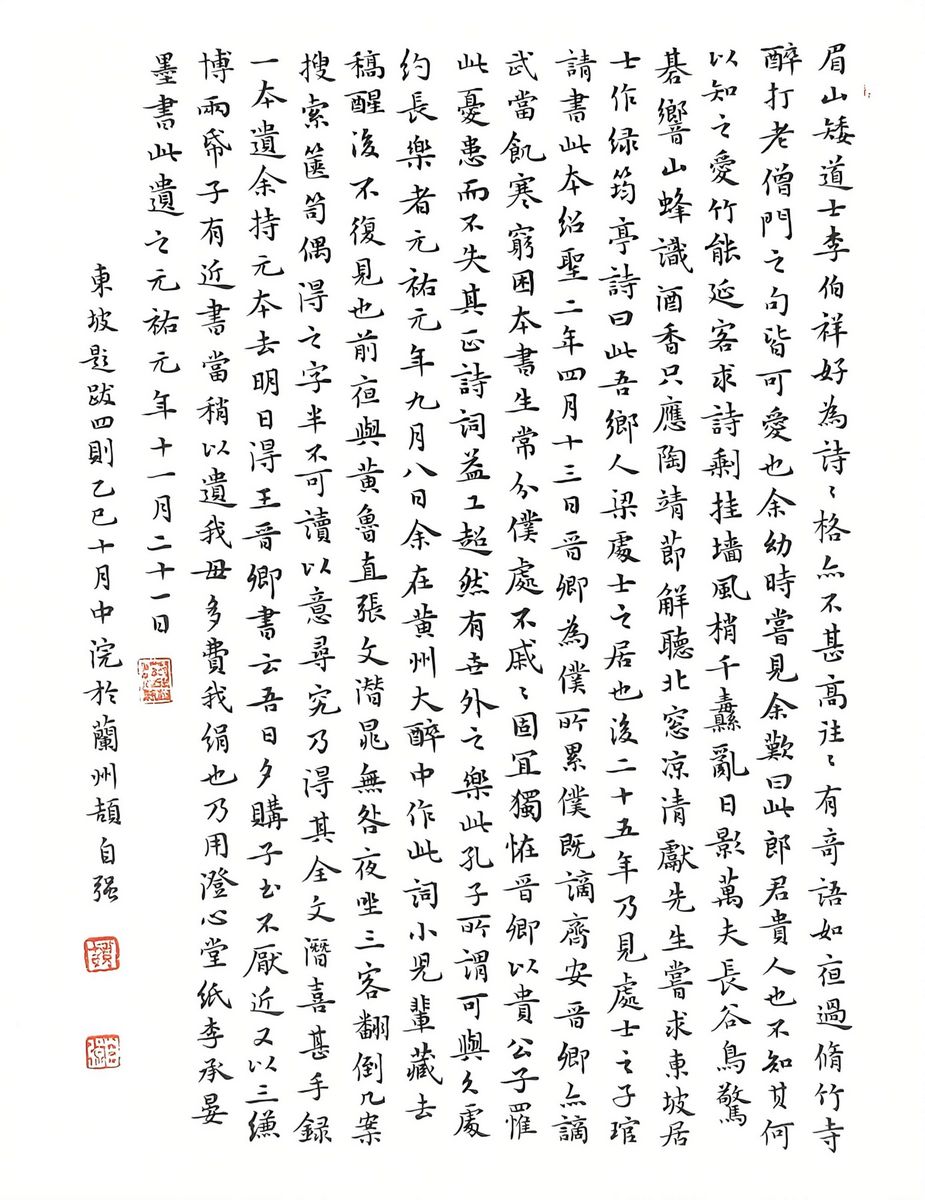 眉山矮道士李伯祥好為詩〻格亦不甚高往〻有奇語如夜過脩竹寺
醉打老僧門之句皆可愛也余幼時嘗見余歎曰此郎君貴人也不知其何
以知之愛竹能延客求詩剩挂墻風梢千纛亂日影萬夫長谷鳥驚
碁響山蜂識酒香只應陶靖節解聽北窓凉清獻先生嘗求東坡居
士作绿筠亭詩曰此吾鄉人梁處士之居也後二十五年乃見處士之子琯
請書此本绍聖二年四月十三日晉卿為僕所累僕既謫齊安晉卿亦謫
武當飢寒窮困本書生常分僕處不戚〻固宜獨恠晉卿以貴公子罹
此憂患而不失其正詩詞益工超然有世外之樂此孔子所謂可與久處
约長樂者元祐元年九月八日余在黄州大醉中作此詞小兒輩藏去
稿醒後不復見也前夜與黄魯直張文潛晁無咎夜坐三客翻倒几案
搜索篋笥偶得之字半不可讀以意尋究乃得其全文潛喜甚手録
一本遺余持元本去明日得王晉卿書云吾日夕購子書不厭近又以三縑
博兩紙子有近書當稍以遺我毋多費我絹也乃用澄心堂纸李承晏
墨書此遺之元祐元年十一月二十一日
東坡题跋四則乙巳十月中浣於蘭州頡自强